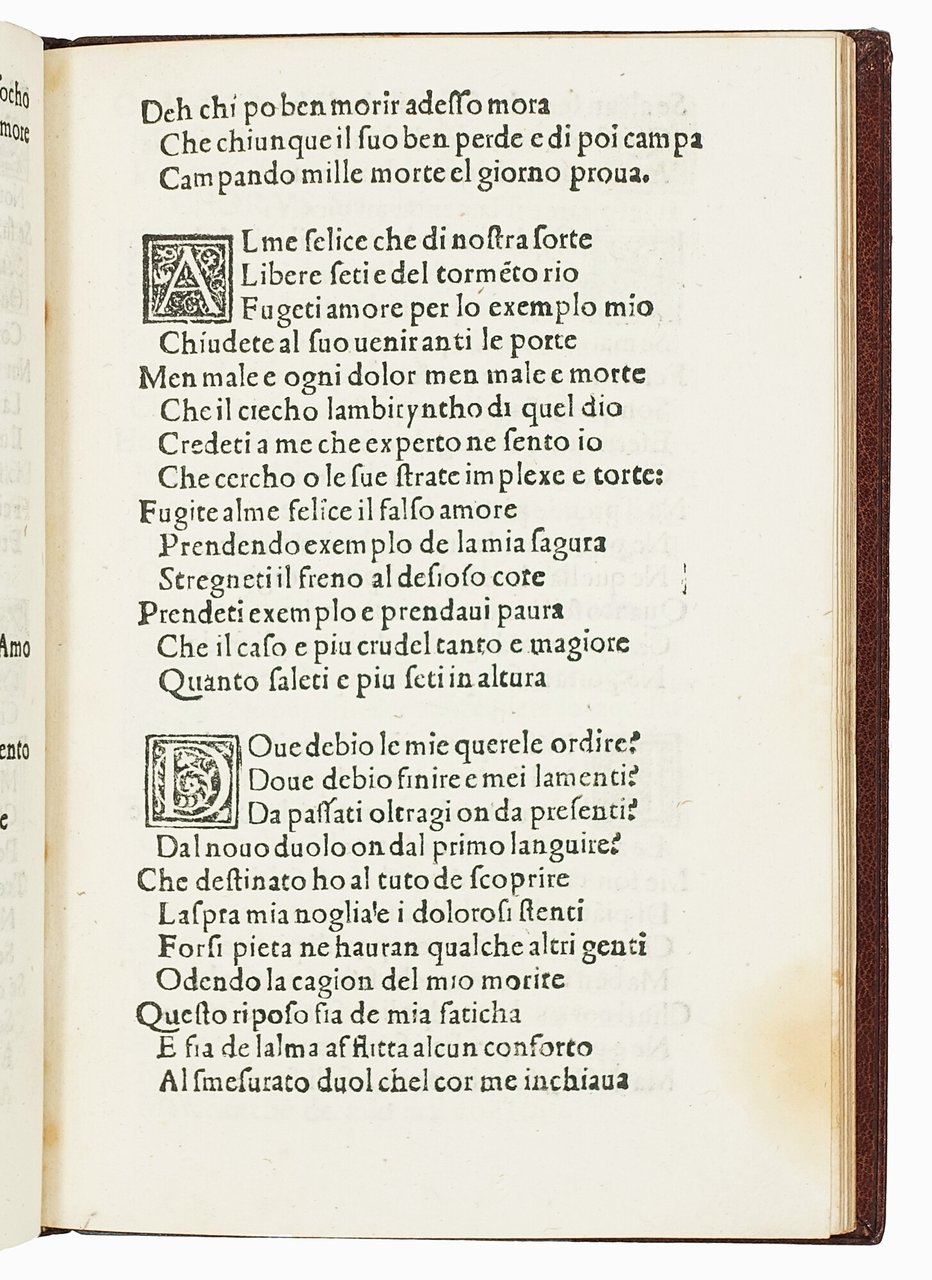 ſocho
more
Amo
ento
e
Deh chi po ben morir adeſſo mora
Che chiunque il ſuo ben perde e di poi campa
Campando mille morte el giorno proua.
ALme felice che di noſtra ſorte
Libere ſeti e del tormẽto rio
Fugeti amore per lo exemplo mio
Chiudete al ſuo uenir anti le porte
Men male e ogni dolor men male e morte
Che il ciecho lambiryntho di quel dio
Credeti a me che experto ne ſento io
Che cercho o le ſue ſtrate implexe e torte:
Fugite alme felice il falſo amore
Prendendo exemplo de la mia ſagura
Stregneti il freno al deſioſo core
Prendeti exemplo e prendaui paura
Che il caſo e piu crudel tanto e magiore
Quanto ſaleti e piu ſeti in altura
DOue debio le mie querele ordire?
Doue debio finire e mei lamenti?
Da paſſati oltragi on da preſenti?
Dal nouo duolo on dal primo languire?
Che deſtinato ho al tuto de ſcoprire
Laſpra mia noglia'e i doloroſi ſtenti
Forſi pieta ne hauran qualche altri genti
Odendo la cagion del mio morire
Queſto ripoſo fia de mia faticha
E fia de lalma afflitta alcun conforto
Al ſmeſurato duol chel cor me inchiaua